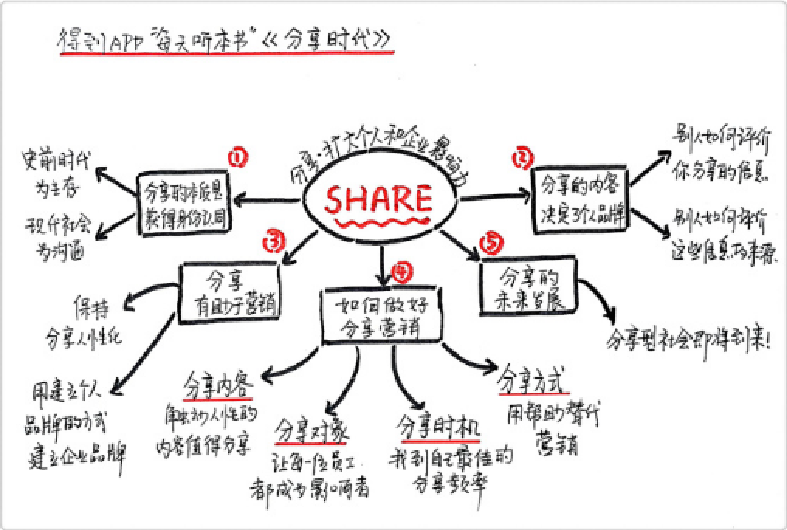 得到APP "每天听本书"《分享时代》
分享·扩大个人和企业影响力
SHARE
①
分享的本质是
获得身份认同
史前时代
为生存
现代社会
为沟通
②
分享的内容
决定个人品牌
别人如何评价
你分享的信息
别人如何评价
这些信息的来源
③
分享
有助于营销
保持
分享人性化
用建立个人
品牌的方式
建立企业品牌
④
如何做好
分享营销
分享内容
触动人性的
内容值得分享
分享对象
让每一位员工
都成为影响者
分享时机
找到自己最佳的
分享频率
分享方式
用帮助替代
营销
⑤
分享的
未来发展
分享型社会即将到来!